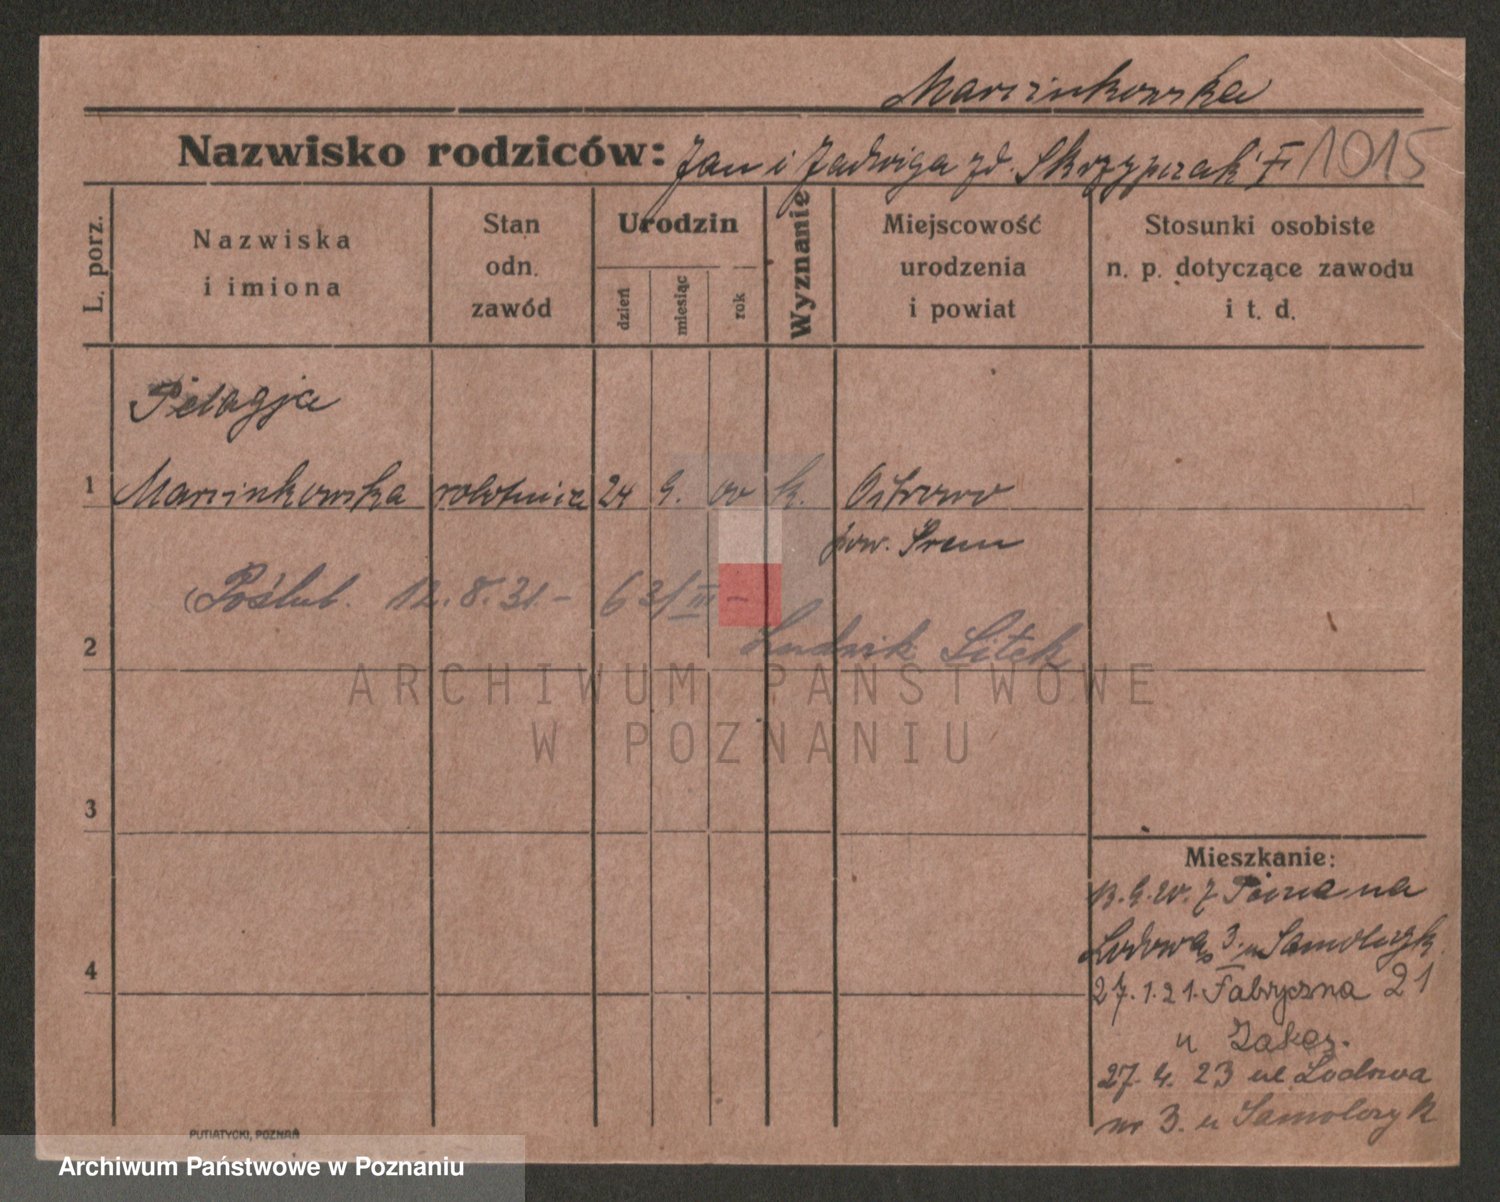 Marcinkowska
Nazwisko rodziców: Jan i Jadwiga zd. Skrzypczak 1015
L. porz.
Nazwiska
i imiona
Stan
odn.
zawód
Urodzin
dzień
miesiąc
rok
Wyznanie
Miejscowość
urodzenia
i powiat
Stosunki osobiste
n. p. dotyczące zawodu
i t. d.
Pelagja
1 Marcinkowska robotnica 24 9. 00 k. Ostrowo
pow. Śrem
Poślub. 12.8.31 - 631/III -
2 Ludwik Sitek
ARCHIWUM PAŃSTWOWE
W POZNANIU
3
Mieszkanie:
13.9.20. z
Lodowa 3. u Samolczyk
4
27.1.21. Fabryczna 21
u
27.4.23 ul Lodowa
nr 3. u Samolczyk
PUTIATYCKI, POZNAŃ
Archiwum Państwowe w Poznaniu